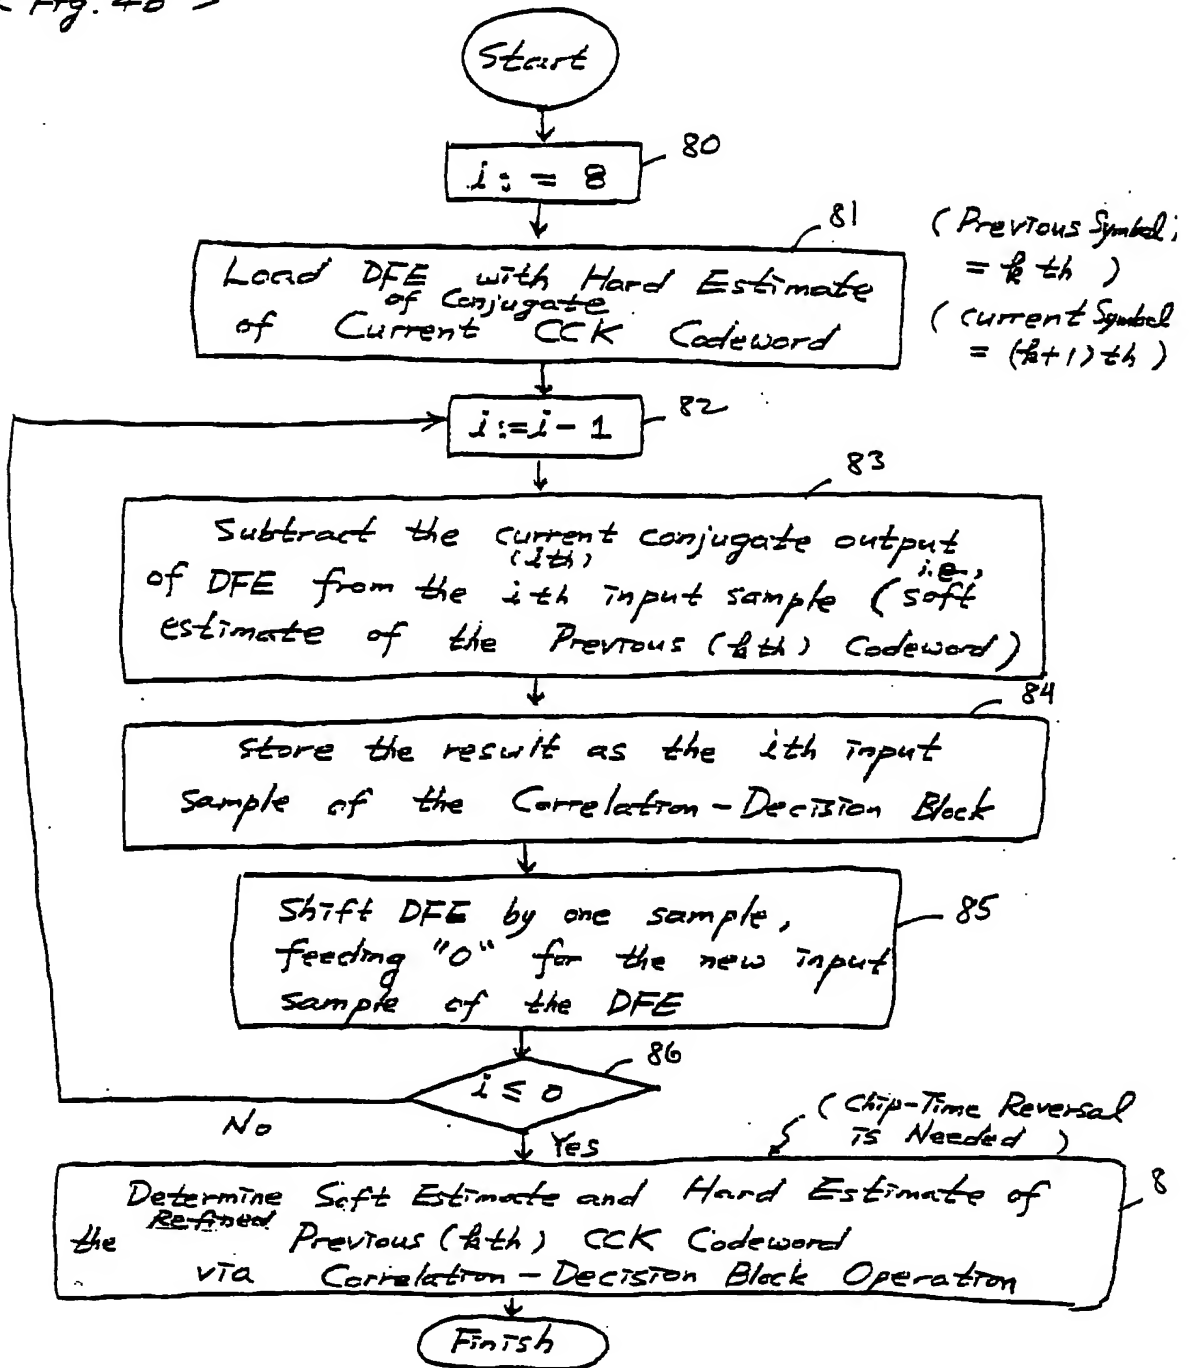 < Fig. 4b >
Start
80
i := 8
81
Load DFE with Hard Estimate
of Conjugate
of Current CCK Codeword
( Previous Symbol ;
= k th )
( current Symbol
= (k+1) th )
82
i := i - 1
83
Subtract the current conjugate output
(ith)
of DFE from the ith input sample ( soft
i.e.,
estimate of the Previous (kth) Codeword )
84
Store the result as the ith input
sample of the Correlation-Decision Block
85
Shift DFE by one sample,
feeding "0" for the new input
sample of the DFE
86
i ≤ 0
No
Yes
( Chip-Time Reversal
is Needed )
8
Determine Soft Estimate and Hard Estimate of
Refined
the Previous (kth) CCK Codeword
via Correlation-Decision Block Operation
Finish